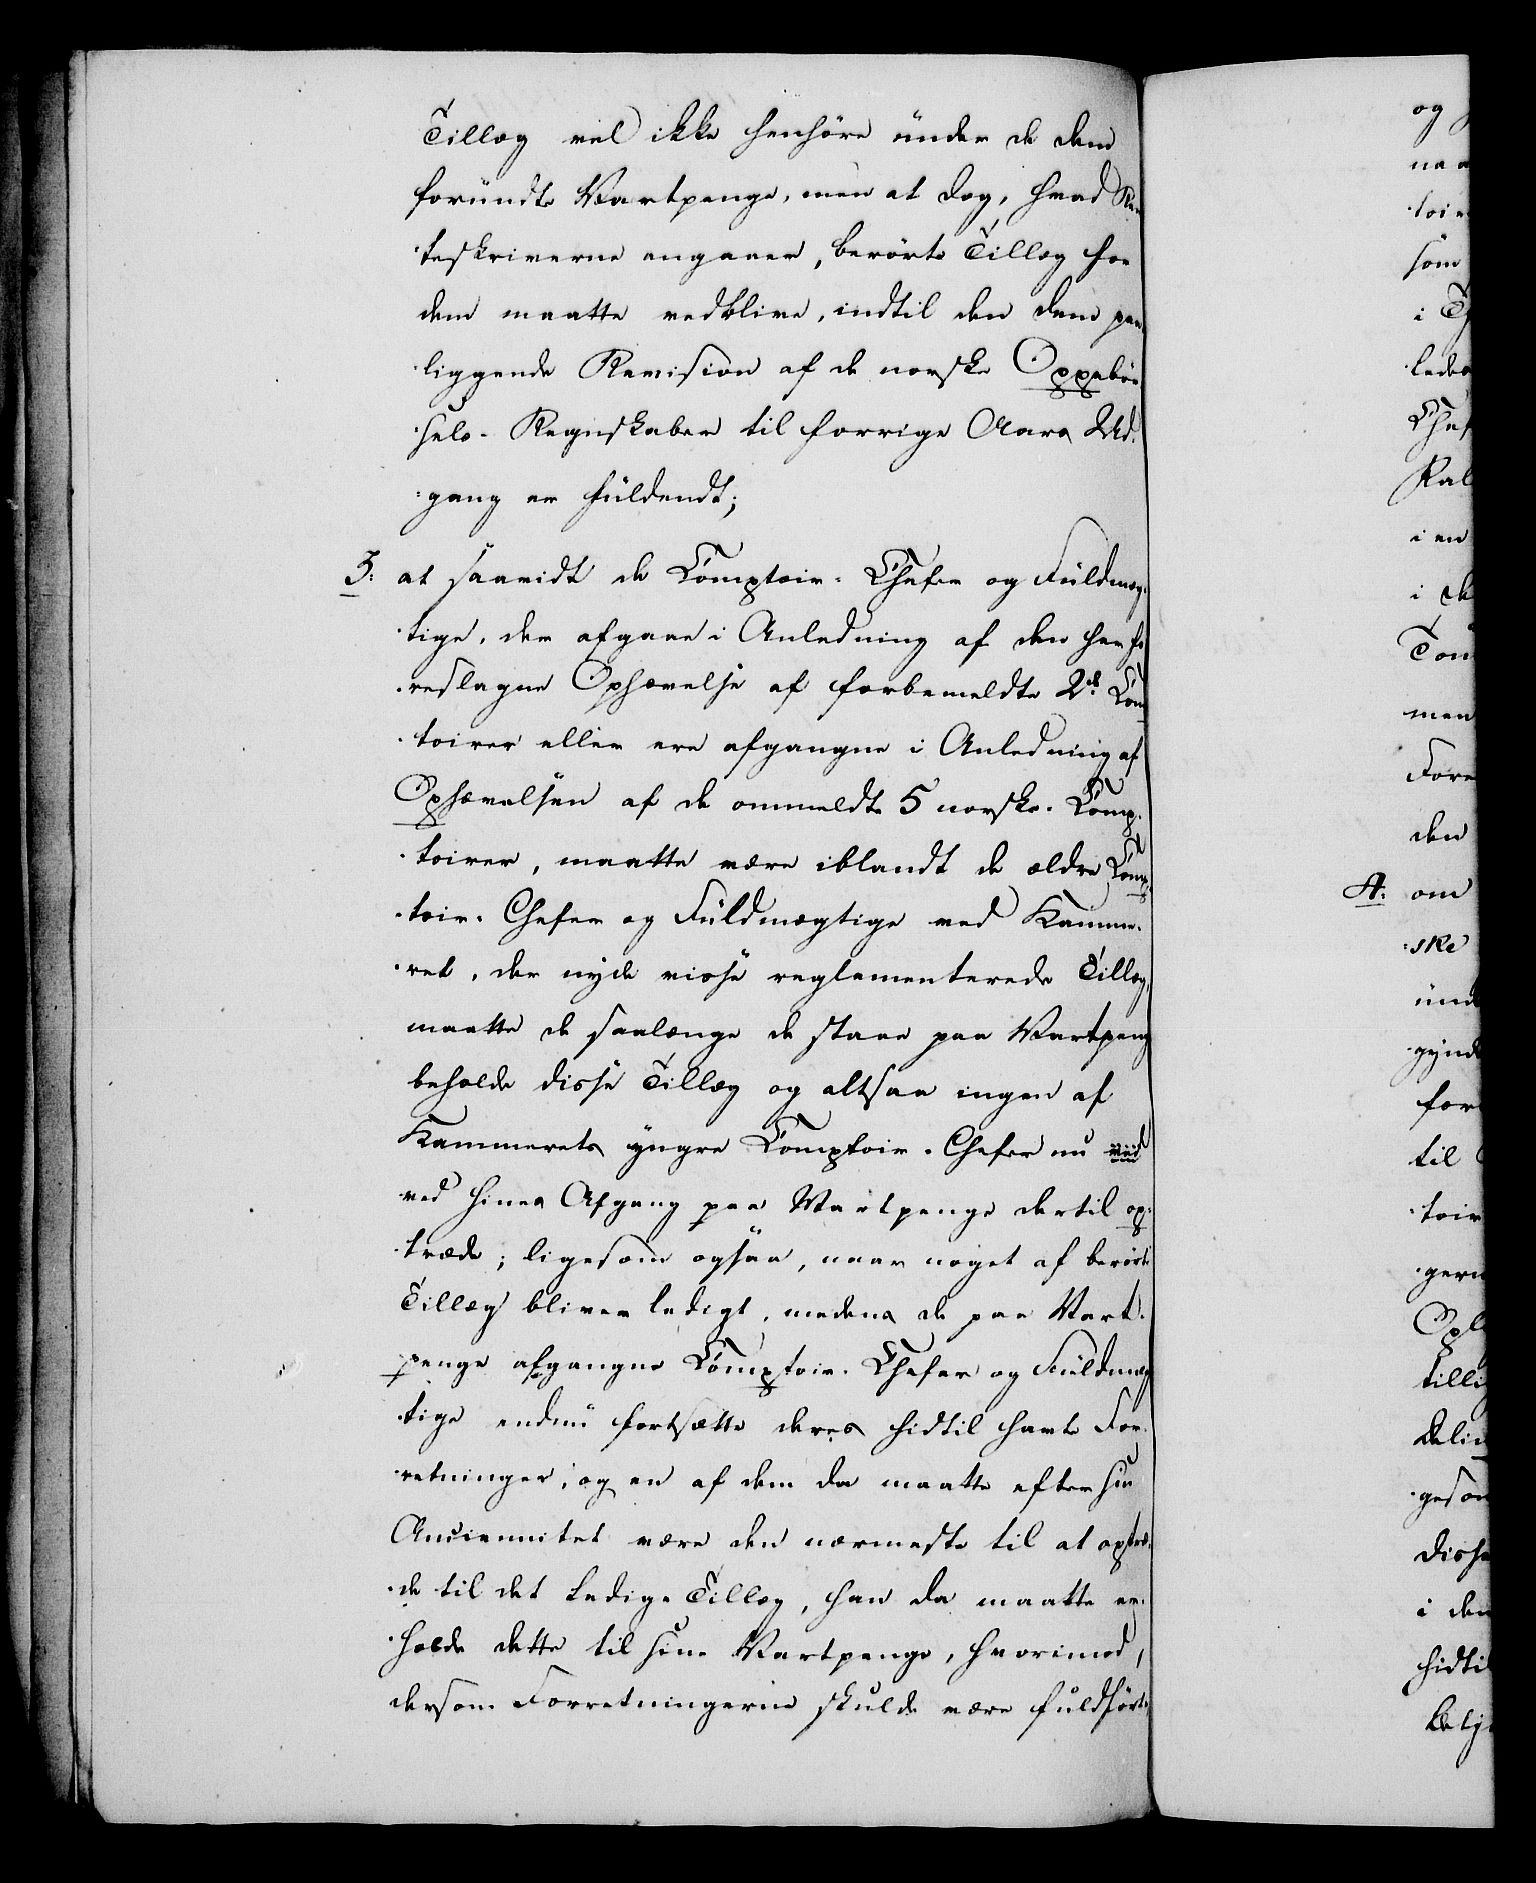 Tillæg vel ikke henhöre ünder de dem
foründte Vartpenge, men at dog, hvad Ren
teskriverne angaaer, berörte Tillæg for
dem maatte vedblive, indtil den dem paa
liggende Revision af de norske Oppebör
sels-Regnskaber til forrige Aars Ud-
gang er füldendt;
3: at saavidt de Comptoir-Chefer og Füldmæg-
tige, der afgaae i Anledning af den her fo
reslagne Ophævelse af forbemeldte 2de Com
toirer eller ere afgangne i Anledning af
Ophævelsen af de ommeldte 5 norske Comp-
toirer, maatte være iblandt de ældre Comp-
toir-Chefer og Füldmægtige ved Kamme-
ret, der nyde visse reglementerede Tillæg,
maatte de saalænge de staae paa Vartpeng
beholde disse Tillæg og altsaa ingen af
Kammerets yngre Comptoir-Chefer nu
ved hines Afgang paa Vartpenge dertil op-
træde; ligesom ogsaa, naar noget af berörte
Tillæg bliver ledigt, medens de paa Vart-
penge afgangne Comptoir-Chefer og Füldmæg
tige endnü fortsætte deres hidtil havte For-
retninger, og en af dem da maatte efter sin
Anciennitet være den nærmeste til at optræ-
de til det ledige Tillæg, han da maatte er-
holde dette til sine Vartpenge, hvorimod,
dersom Forretningerne skulde være fuldförte
og
som
i
i en
i
men
den
A: om
ske
til
i den